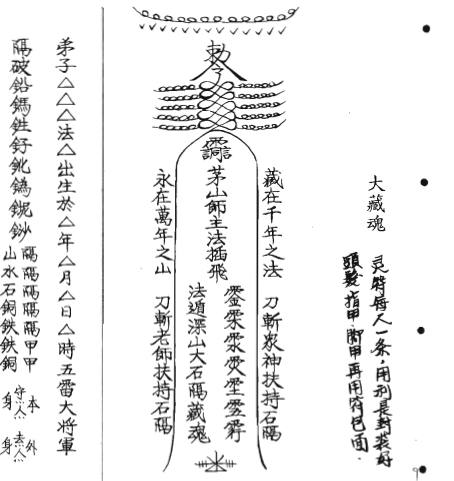 大藏魂
灵符每人一条,用刑長封裝好
頭髮指甲脚甲再用符包面.
敕令
藏在千年之法 刀斬衆神扶持石隔
茅山師主法插飛
法遁深山大石隔藏魂
永在萬年之山 刀斬老師扶持石隔
弟子△△△法△出生於△年△月△日△時五雷大将軍
隔破鉛鎷鉎釨
隔隔隔隔隔甲甲
山水石銅鉄鉄銅
本守身
外去身
9